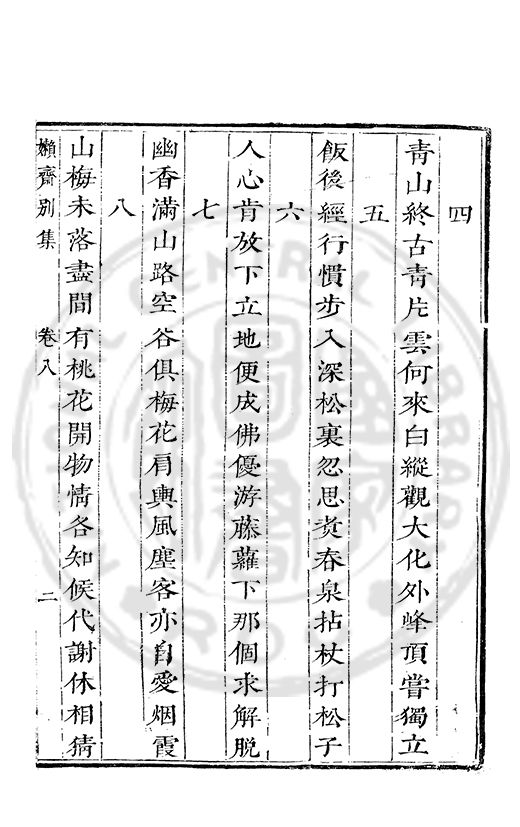 四
青山終古青片雲何來白縱觀大化外峰頂嘗獨立
五
飯後經行慣步入深松裏忽思煑春泉拈杖打松子
六
人心肯放下立地便成佛優游藤蘿下那個求解脫
七
幽香滿山路空谷俱梅花肩輿風塵客亦自愛烟霞
八
山梅未落盡間有桃花開物情各知候代謝休相猜
嬾齋別集 卷八 二